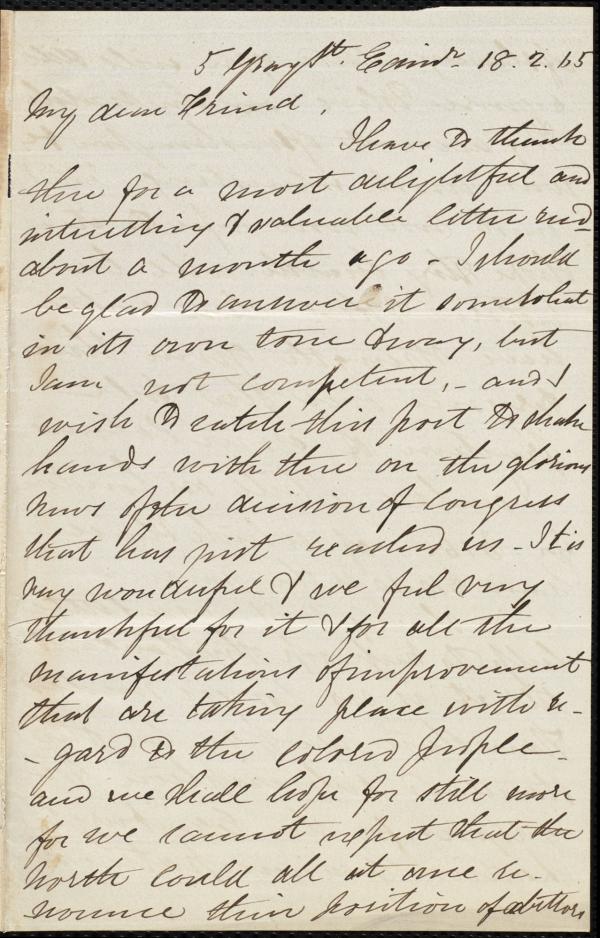 5 Gray St. Edinr. 18. 2. 65
My dear Friend,
I have to thank
thee for a most delightful and
interesting & valuable letter recd
about a month ago - I should
be glad to answer it somewhat
in its own tone & way, but
I am not competent, - and I
wish to catch this post to shake
hands with thee on the glorious
news of the decision of Congress
that has just reached us - It is
very wonderful & we feel very
thankful for it & for all the
manifestations of improvement
that are taking place with re-
-gard to the colored people -
and we shall hope for still more
for we cannot expect that the
North could all at once re-
nounce their position of abettors